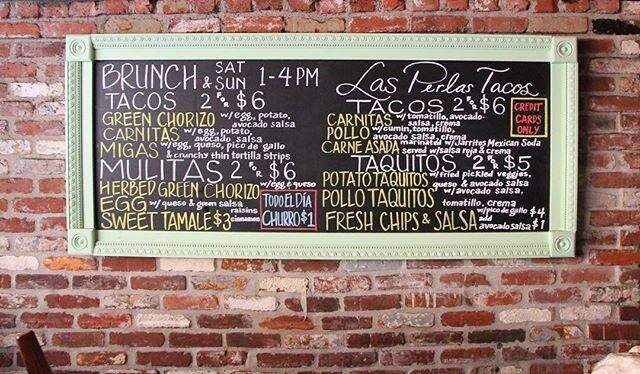 BRUNCH & SAT SUN 1-4 PM
TACOS 2 FOR $6
GREEN CHORIZO w/egg, potato, avocado salsa
CARNITAS w/egg, potato, avocado salsa
MIGAS w/egg, queso, pico de gallo & crunchy thin tortilla strips
MULITAS 2 FOR $6
HERBED GREEN CHORIZO w/egg & queso
EGG w/queso & green salsa
SWEET TAMALE $3 raisins cinnamon
TODO EL DÍA
CHURRO $1
Las Perlas Tacos
TACOS 2 FOR $6
CREDIT
CARDS
ONLY
CARNITAS w/tomatillo, avocado salsa, crema
POLLO w/cumin, tomatillo, avocado salsa
CARNE ASADA marinated w/Jarritos Mexican Soda served w/salsa roja & crema
TAQUITOS 2 FOR $5
POTATO TAQUITOS w/fried pickled veggies, queso & avocado salsa
POLLO TAQUITOS w/avocado salsa, tomatillo, crema
FRESH CHIPS & SALSA w/pico de gallo $4
add avocado salsa $1